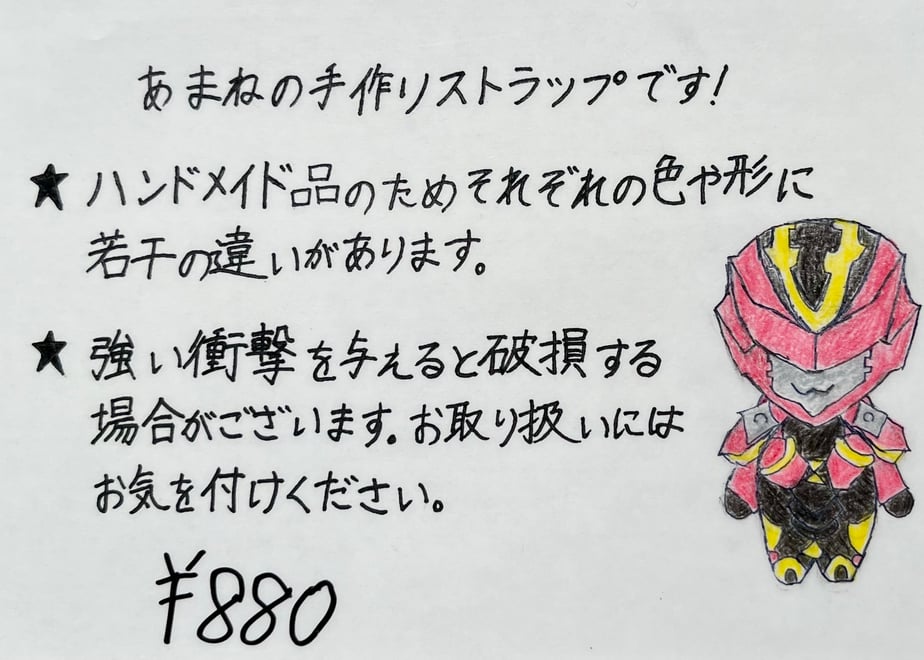 あまねの手作りストラップです!
★ ハンドメイド品のためそれぞれの色や形に
若干の違いがあります。
★ 強い衝撃を与えると破損する
場合がございます。お取り扱いには
お気を付けください。
¥880